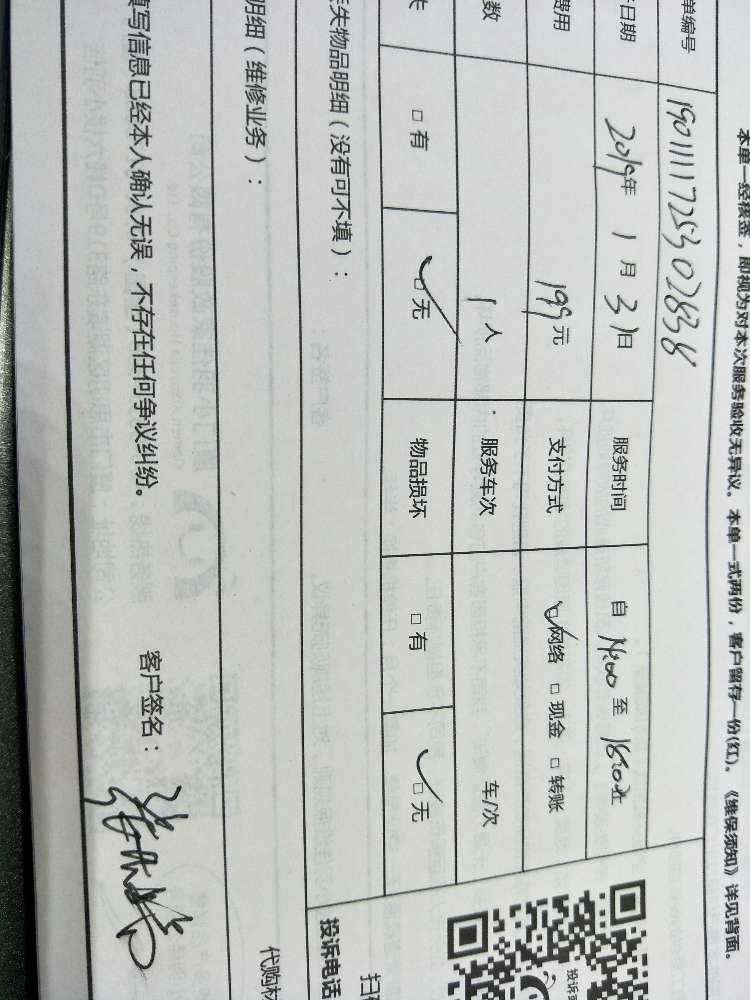 本单一经核签，即视为对本次服务验收无异议。本单一式两份，客户留存一份(红)。《维保须知》详见背面。
单编号 1901111725302838
日期 2019年 1月31日 服务时间 自 14:00 至
费用 199元 支付方式 网络 □ 现金 □ 转账
数 1人 服务车次 车/次
失 □ 有 □ 无 物品损坏 □ 有 □ 无
丢失物品明细（没有可不填）：
明细（维修业务）：
填写信息已经本人确认无误，不存在任何争议纠纷。
客户签名：
投诉电话
代购材
扫
投诉